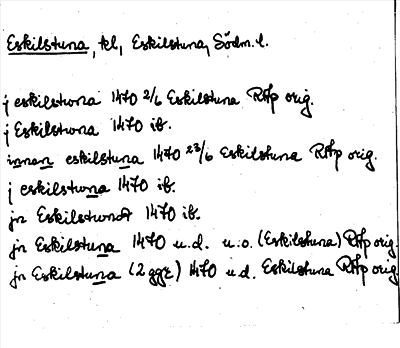 Eskilstuna, kl, Eskilstuna, Södm. l.
j eskilstwna 1470 2/6 Eskilstuna RAp orig.
j Eskilstwna 1470 ib.
innan eskilstuna 1470 23/6 Eskilstuna RAp orig.
j eskilstwna 1470 ib.
jn Eskilstwna 1470 ib.
jn Eskilstuna 1470 u.d. u.o. (Eskilstuna) RAp orig.
jn Eskilstuna (2 ggr) 1470 u.d. Eskilstuna RAp orig